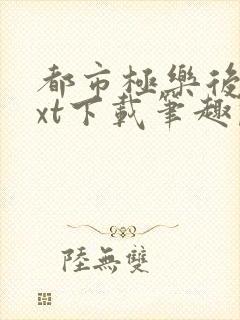 都市極樂後
xt下載筆趣
陸無雙